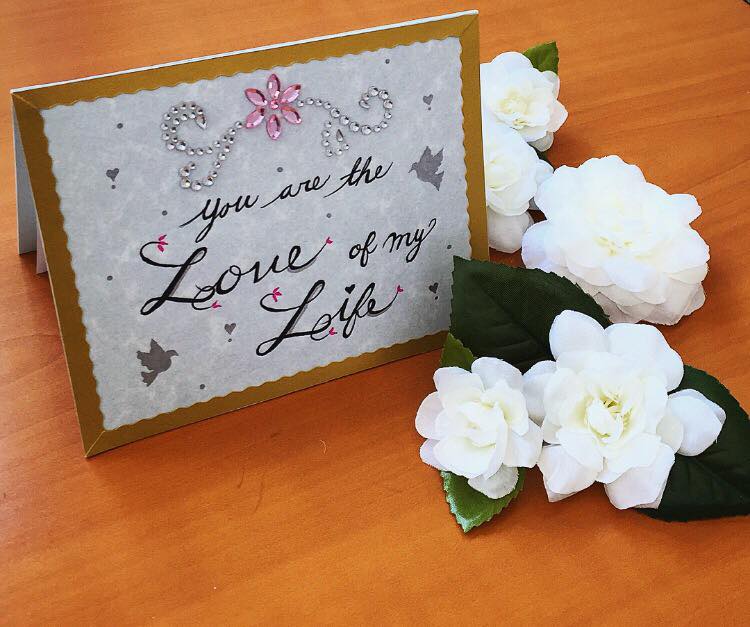 you are the
Love of my
Life